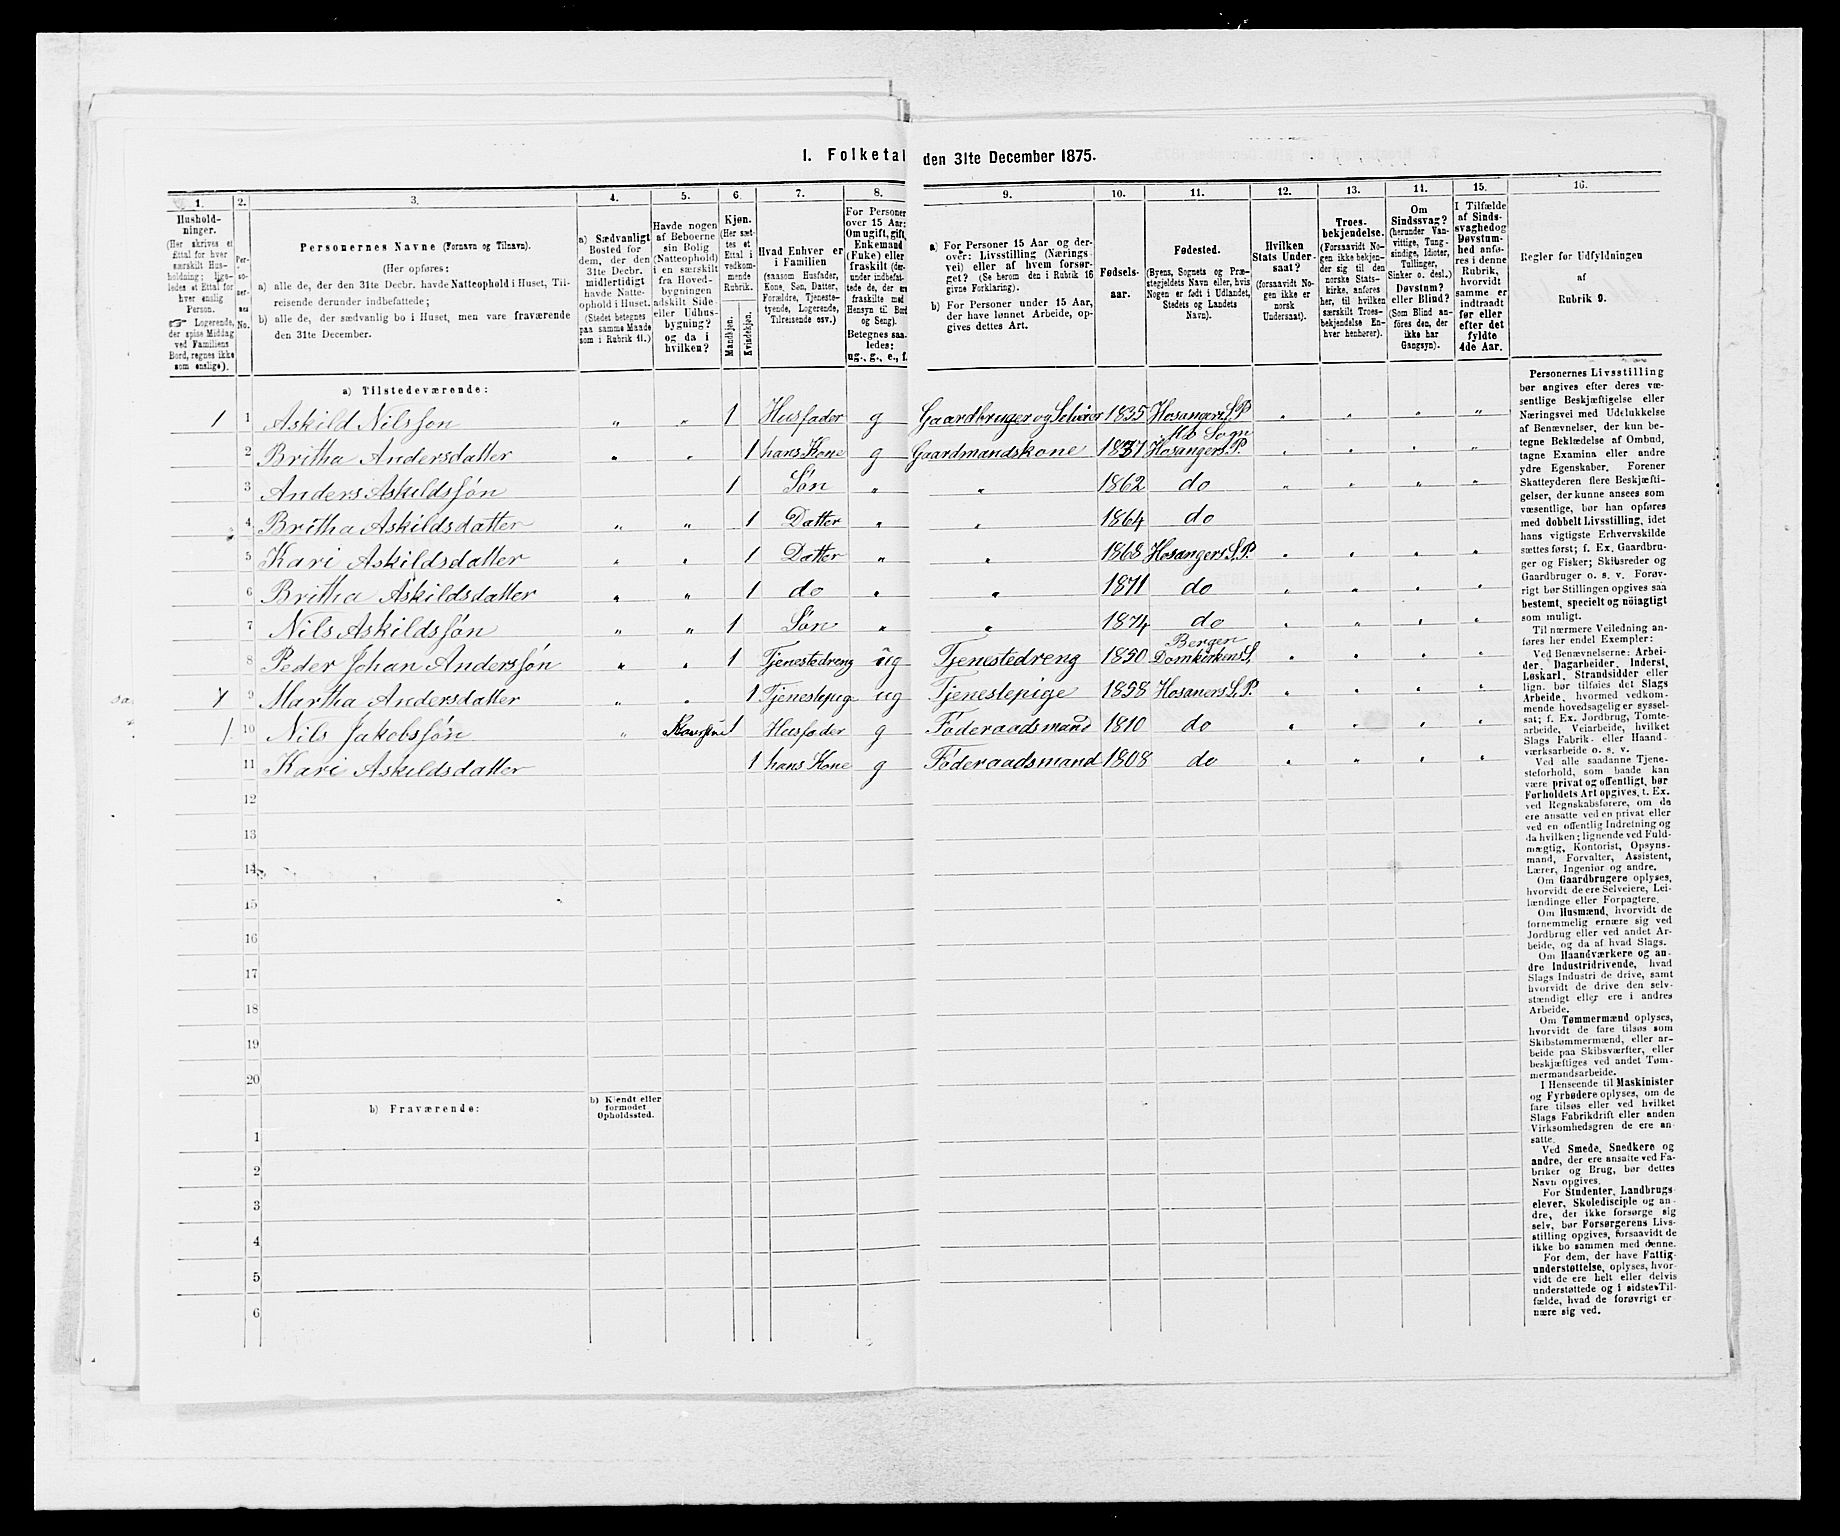 I. Folketal den 31te December 1875.
1. 2. 3. 4. 5. 6. 7. 8. 9. 10. 11. 12. 13. 14. 15. 16.
Hushold-
ninger.
(Her skrives et
Ettal for hver
særskilt Hus-
holdning; lige-
ledes et Ettal for
hver enslig
Person.
☞ Logerende,
der spise Middag
ved Familiens
Bord, regnes ikke
som enslige).
Per-
so-
ner-
nes
No.
Personernes Navne (Fornavn og Tilnavn).
(Her opføres:
a) alle de, der den 31te Decbr. havde Natteophold i Huset, Til-
reisende derunder indbefattede;
b) alle de, der sædvanlig bo i Huset, men vare fraværende
den 31te December.
a) Sædvanligt
Bosted for
dem, der den
31te Decbr.
midlertidigt
havde Natte-
ophold i Huset.
(Stedet betegnes
paa samme Maade
som i Rubrik 11.)
Havde nogen
af Beboerne
sin Bolig
(Natteophold)
i en særskilt
fra Hoved-
bygningen
adskilt Side-
eller Udhus-
bygning?
og da i
hvilken?
Kjøn.
(Her sæt-
tes et
Ettal i
vedkom-
mende
Rubrik.
Mandkjøn.
Kvindekjøn.
Hvad Enhver er
i Familien
(saasom Husfader,
Kone, Søn, Datter,
Forældre, Tjeneste-
tyende, Logerende,
Tilreisende osv.)
For Personer
over 15 Aar:
Om ugift, gift,
Enkemand
(Enke) eller
fraskilt (der-
under indbefat-
tede de, der ere
fraskilte med
Hensyn til Bord
og Seng).
Betegnes saa-
ledes:
ug., g., e., f.
a) For Personer 15 Aar og der-
over: Livsstilling (Nærings-
vei) eller af hvem forsør-
get? (Se herom den i Rubrik 16
givne Forklaring).
b) For Personer under 15 Aar,
der have lønnet Arbeide, op-
gives dettes Art.
Fødsels-
aar.
Fødested.
(Byens, Sognets og Præ-
stegjeldets Navn eller, hvis
Nogen er født i Udlandet,
Stedets og Landets
Navn).
Hvilken
Stats Under-
saat?
(forsaavidt No-
gen ikke er
norsk
Undersaat).
Troes-
bekjendelse.
(Forsaavidt No-
gen ikke bekjen-
der sig til den
norske Stats-
kirke, anføres
her, til hvilken
særskilt Troes-
bekjendelse En-
hver henhører).
Om
Sindssvag?
(herunder Van-
vittige, Tung-
sindige, Idioter,
Tullinger,
Sinker o. desl.)
Døvstum?
eller Blind?
(Som Blind an-
føres den, der
ikke har
Gangsyn).
I Tilfælde
af Sinds-
svaghed og
Døvstum-
hed anfø-
res i denne
Rubrik,
hvorvidt
samme er
indtraadt
før eller
efter det
fyldte
4de Aar.
Regler for Udfyldningen
af
Rubrik 9.
a) Tilstedeværende:
1 1 Askild Nilssøn " " 1 Husfader g Gaardbruger og Selveier 1835 Hosangers S. P. " " " "
2 Britha Andersdatter " " 1 hans Kone g Gaardmandskone 1837 Mo Sogn Hosangers P. " " " "
3 Anders Askildssøn 1 Søn " " 1862 do " " " "
4 Britha Askildsdatter " " 1 Datter " " 1864 do
5 Kari Askildsdatter " " 1 Datter " " 1868 Hosangers S. P. " " " "
6 Britha Askildsdatter " " 1 do " " 1871 do " " " "
7 Nils Askildssøn " " 1 Søn " " 1874 do " " " "
8 Peder Johan Anderssøn " " 1 Tjenestedreng ug Tjenestedreng 1850 Bergen Domkirkens S. " " " "
9 Martha Andersdatter " " 1 Tjenestepig ug Tjenestepige 1858 Hosaners S. P. " " " "
1 10 Nils Jakobssøn " 1 Husfader g Føderaadsmand 1810 do " " " "
11 Kari Askildsdatter 1 hans Kone g Føderaadsmand 1808 do " " " "
12
13
14
15
16
17
18
19
20
b) Fraværende:
b) Kjendt eller
formodet
Opholdssted.
1
2
3
4
5
6
Personernes Livsstilling
bør angives efter deres væ-
sentlige Beskjæftigelse eller
Næringsvei med Udelukkelse
af Benævnelser, der kun be-
tegne Beklædelse af Ombud,
tagne Examina eller andre
ydre Egenskaber. Forener
Skatteyderen flere Beskjæfti-
gelser, der kunne ansees som
væsentlige, bør han opføres
med dobbelt Livsstilling, idet
hans vigtigste Erhvervskilde
sættes først; f. Ex. Gaardbru-
ger og Fisker; Skibsreder og
Gaardbruger o. s. v. Forøv-
rigt bør Stillingen opgives saa
bestemt, specielt og nöiagtigt
som muligt.
Til nærmere Veiledning an-
føres her endel Exempler:
Ved Benævnelserne: Arbei-
der, Dagarbeider, Inderst,
Løskarl, Strandsidder eller
lign. bør tilføies det Slags
Arbeide, hvormed vedkom-
mende hovedsagelig er syssel-
sat; f. Ex. Jordbrug, Tomte-
arbeide, Veiarbeide, hvilket
Slags Fabrik- eller Haand-
værksarbeide o. s. v.
Ved alle saadanne Tjene-
steforhold, som baade kan
være privat og offentligt, bør
Forholdets Art opgives, t. Ex.
ved Regnskabsførere, om de
ere ansatte ved en privat eller
ved en offentlig Indretning og
da hvilken; lignende ved Fuld-
mægtig, Kontorist, Opsyns-
mand, Forvalter, Assistent,
Lærer, Ingeniør og andre.
Om Gaardbrugere oplyses,
hvorvidt de ere Selveiere, Lei-
lændinge eller Forpagtere.
Om Husmænd, hvorvidt de
fornemmelig ernære sig ved
Jordbrug eller ved andet Ar-
beide, og da af hvad Slags.
Om Haandværkere og an-
dre Industridrivende, hvad
Slags Industri de drive, samt
hvorvidt de drive den selv-
stændigt eller ere i andres
Arbeide.
Om Tømmermænd oplyses,
hvorvidt de fare tilsøs som
Skibstømmermænd, eller ar-
beide paa Skibsværfter, eller
beskjæftiges ved andet Tøm-
mermandsarbeide.
I Henseende til Maskinister
og Fyrbødere oplyses, om de
fare tilsøs eller ved hvilket
Slags Fabrikdrift eller anden
Virksomhedsgren de ere an-
satte.
Ved Smede, Snedkere og
andre, der ere ansatte ved Fa-
briker og Brug, bør dettes
Navn opgives.
For Studenter, Landbrugs-
elever, Skoledisciple og an-
dre, der ikke forsørge sig
selv, bør Forsørgerens Livs-
stilling opgives, forsaavidt de
ikke bo sammen med denne.
For dem, der have Fattig-
understøttelse, oplyses, hvor-
vidt de ere helt eller delvis
understøttede og i sidste Til-
fælde, hvad de forøvrigt er-
nære sig ved.